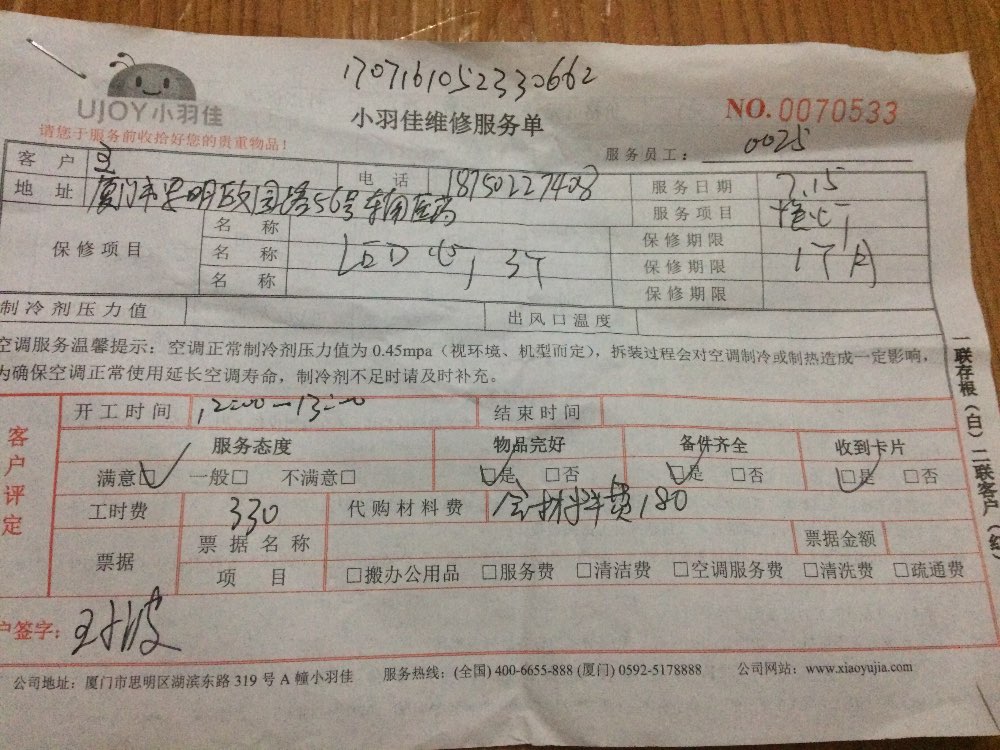 1707161052330662
UJOY小羽佳
小羽佳维修服务单
NO.0070533
请您于服务前收拾好您的贵重物品!
服务员工: 0025
客户 王 电话 18750227408 服务日期 7.15
地址 厦门市思明区 56号 服务项目 灯
保修项目 名称 保修期限
名称 LED灯 3个 保修期限 1个月
名称 保修期限
制冷剂压力值 出风口温度
空调服务温馨提示：空调正常制冷剂压力值为 0.45mpa（视环境、机型而定），拆装过程会对空调制冷或制热造成一定影响，
为确保空调正常使用延长空调寿命，制冷剂不足时请及时补充。
客户评定
开工时间 12:00—13:00 结束时间
服务态度 物品完好 备件齐全 收到卡片
满意□ 一般□ 不满意□ □是 □否 □是 □否 □是 □否
工时费 330 代购材料费 含材料费180
票据 票据名称 票据金额
项目 □搬办公用品 □服务费 □清洁费 □空调服务费 □清洗费 □疏通费
户签字: 王 波
公司地址：厦门市思明区湖滨东路 319 号 A 幢小羽佳 服务热线：(全国) 400-6655-888 (厦门) 0592-5178888 公司网站：www.xiaoyujia.com
一联存根（白）二联客户（红）